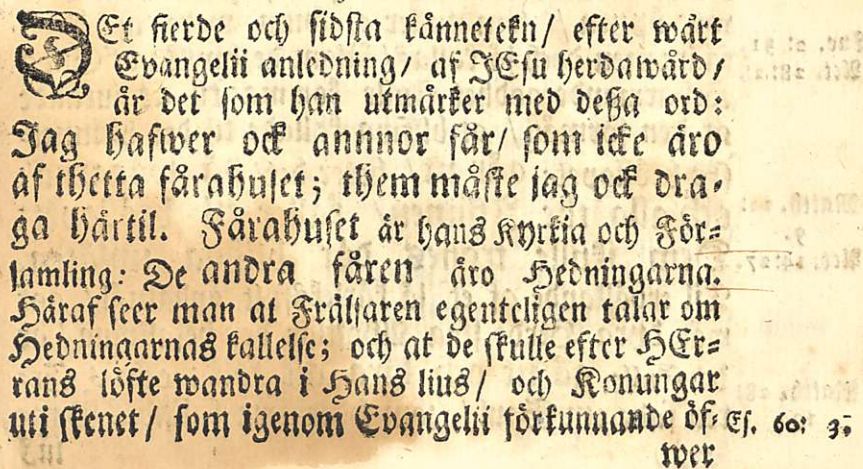 DEt fierde och sidsta kännetekn/ efter wårt
Evangelii anledning/ af JEsu herdawård/
är det som han utmärker med deßa ord:
Jag hafwer ock annnor får/ som icke äro
af thetta fårahuset; them måste jag ock dra-
ga härtil. Fårahuset är hans Kyrkia och För-
samling: De andra fåren äro Hedningarna.
Häraf seer man at Frälsaren egenteligen talar om
Hedningarnas kallelse; och at de skulle efter HEr-
rans löfte wandra i Hans lius/ och Konungar
uti skenet/ som igenom Evangelii förkunnande öf- Es. 60: 3.
wer